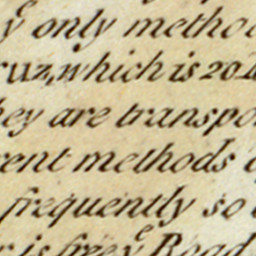 yᵉ only metho
ruz, which is 20
hey are transpo
rent methods
frequently so
is free yᵉ Road